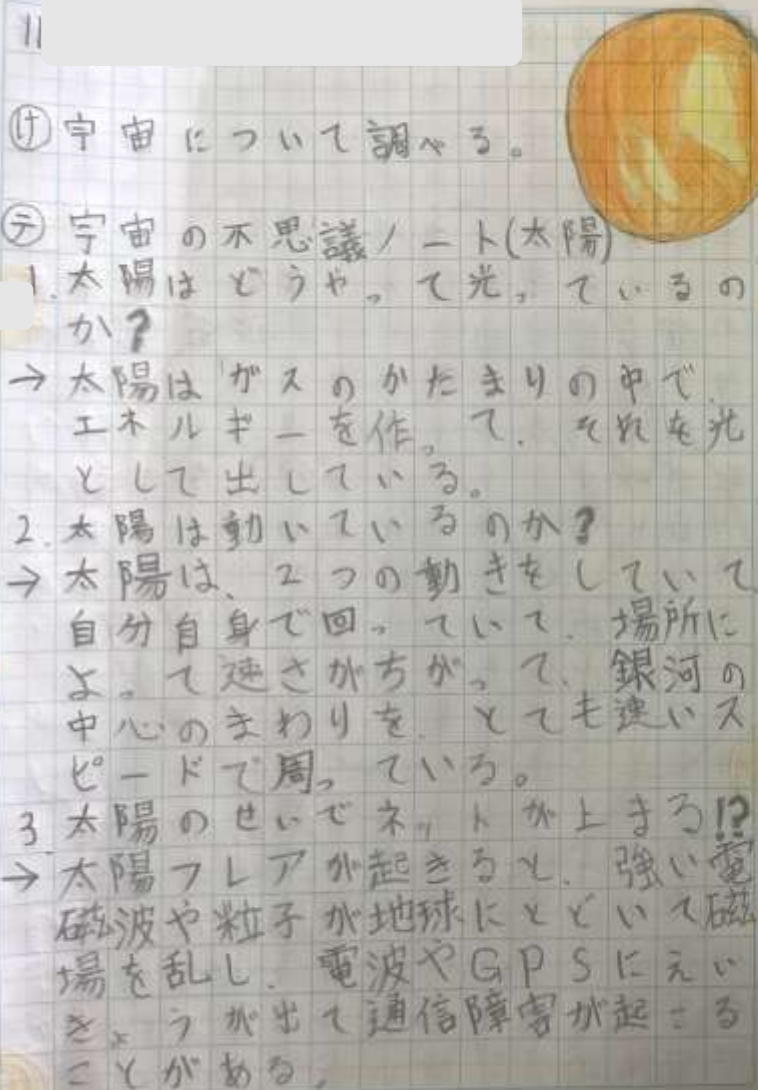 11
け 宇宙について調べる。
テ 宇宙の不思議ノート(太陽)
1.太陽はどうやって光っているの
か?
→太陽はガスのかたまりの中で、
エネルギーを作って、それを光
として出している。
2.太陽は動いているのか?
→太陽は、2つの動きをしていて
自分自身で回っていて、場所に
よって速さがちがって、銀河の
中心のまわりを、とても速いス
ピードで周っている。
3.太陽のせいでネットが止まる!?
→太陽フレアが起きると、強い電
磁波や粒子が地球にとどいて磁
場を乱し、電波やGPSにえい
きょうが出て通信障害が起こる
ことがある。